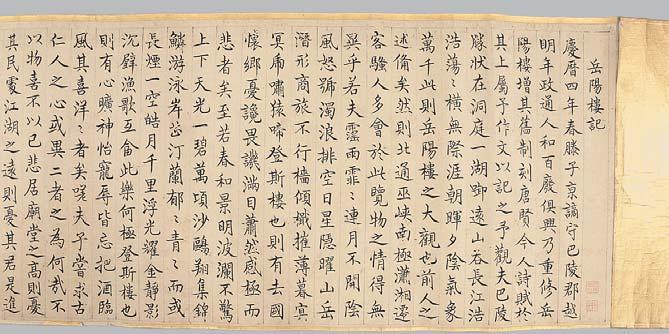 岳陽樓記
慶曆四年春滕子京謫守巴陵郡越
明年政通人和百廢俱興乃重修岳
陽樓增其舊制刻唐賢今人詩賦於
其上屬予作文以記之予觀夫巴陵
勝狀在洞庭一湖銜遠山吞長江浩
浩蕩〻橫無際涯朝暉夕陰氣象
萬千此則岳陽樓之大觀也前人之
述備矣然則北通巫峽南極瀟湘遷
客騷人多會於此覽物之情得無
異乎若夫霪雨霏〻連月不開陰
風怒號濁浪排空日星隱曜山岳
潛形商旅不行檣傾檝摧薄暮冥
冥虎嘯猿啼登斯樓也則有去國
懷鄉憂讒畏譏滿目蕭然感極而
悲者矣至若春和景明波瀾不驚
上下天光一碧萬頃沙鷗翔集錦
鱗游泳岸芷汀蘭郁〻青〻而或
長煙一空皓月千里浮光耀金靜影
沉璧漁歌互畣此樂何極登斯樓也
則有心曠神怡寵辱皆忘把酒臨
風其喜洋〻者矣嗟夫予嘗求古
仁人之心或異二者之為何哉不
以物喜不以己悲居廟堂之高則憂
其民處江湖之遠則憂其君是進